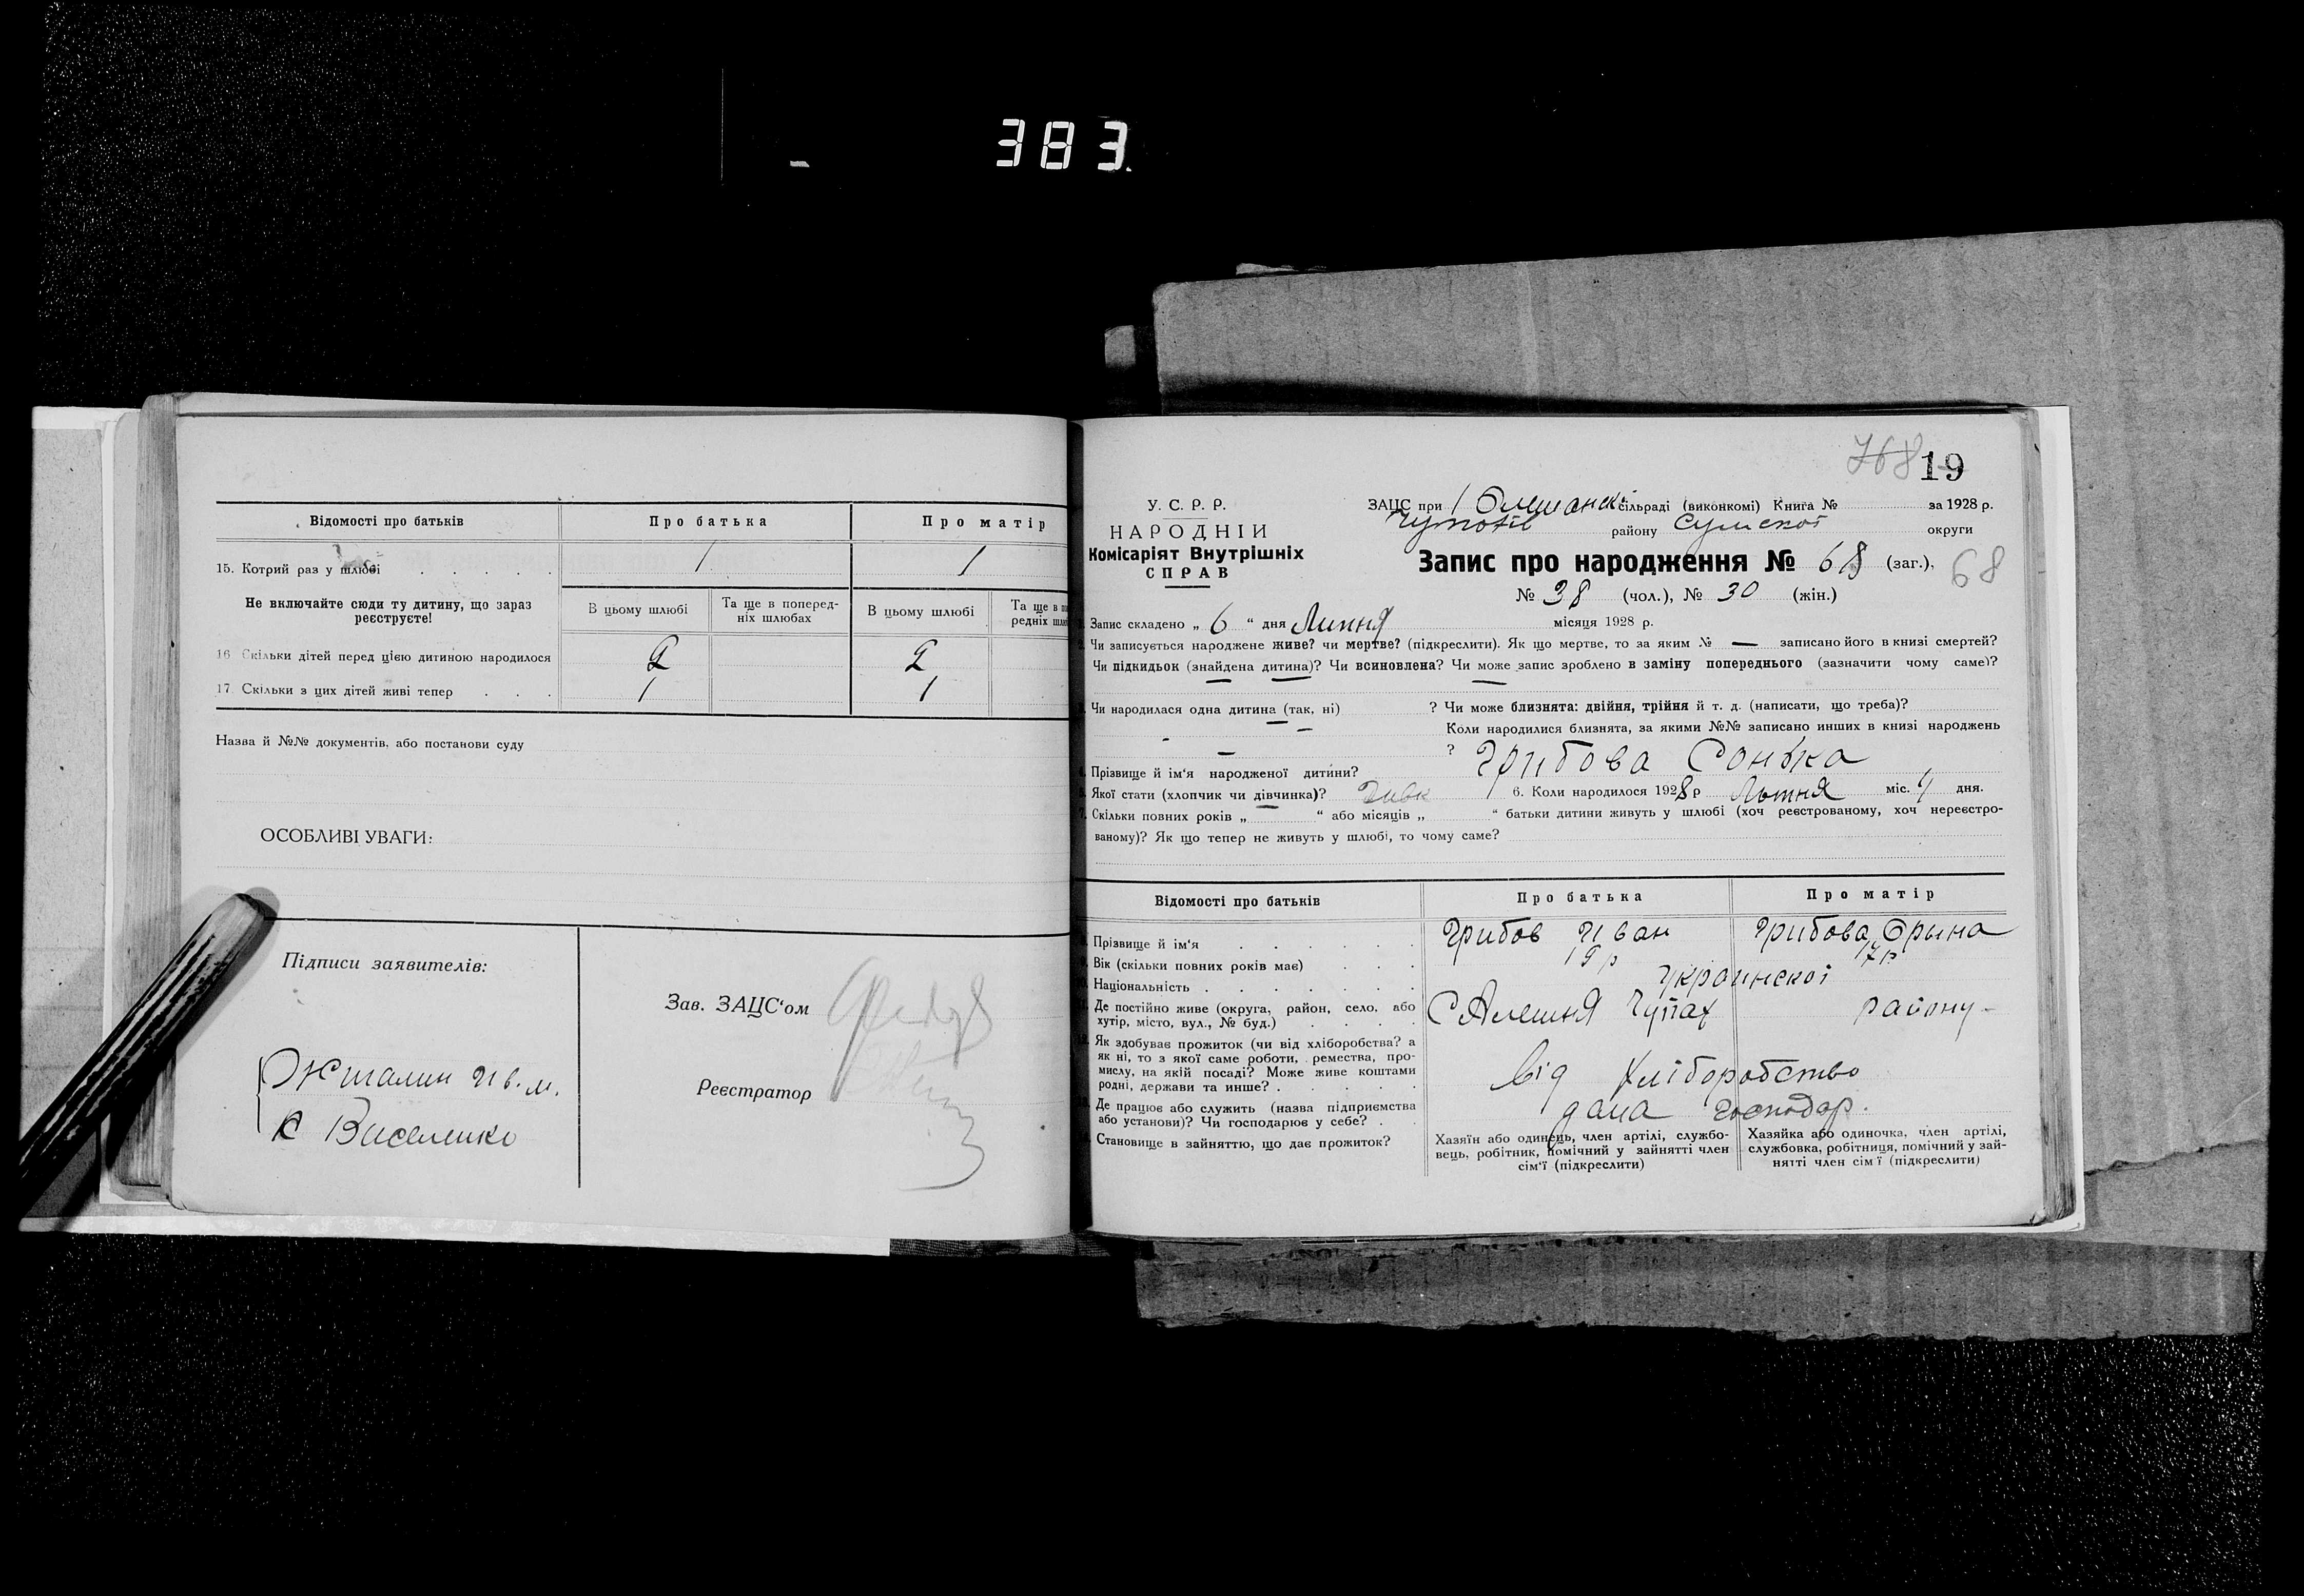 383.
Відомості про батьків
Про батька
Про матір
15. Котрий раз у шлюбі
1
1
Не включайте сюди ту дитину, що зараз реєструєте!
В цьому шлюбі
Та ще в поперед-
ніх шлюбах
В цьому шлюбі
Та ще в
редніх
16 Скільки дітей перед цією дитиною народилося
2
2
17. Скільки з цих дітей живі тепер
1
1
Назва й №№ документів, або постанови суду
ОСОБЛИВІ УВАГИ:
Підписи заявителів:
Зав. ЗАЦС‘ом
Реєстратор
768 19
У. С. Р. Р.
НАРОДНІЙ
Комісаріят Внутрішніх
СПРАВ
ЗАЦС при 1 Олешанскі сільраді (виконкомі) Книга № за 1928 р.
району Сумскої округи
Запис про народження № 68 (заг.), 68
№ 38 (чол.), № 30 (жін.)
Запис складено „ 6 “ дня Липня місяця 1928 р.
Чи записується народжене живе? чи мертве? (підкреслити). Як що мертве, то за яким № — записано його в книзі смертей?
Чи підкидьок (знайдена дитина)? Чи всиновлена? Чи може запис зроблено в заміну попереднього (зазначити чому саме)?
Чи народилася одна дитина (так, ні) ? Чи може близнята: двійня, трійня й т. д. (написати, що треба)?
Коли народилися близнята, за якими №№ записано инших в книзі народжень
?
Прізвище й ім‘я народженої дитини? Грибова Сонька
Якої стати (хлопчик чи дівчинка)? Дивк 6. Коли народилося 1928 р Льтня міс. 4 дня.
Скільки повних років „ “ або місяців „ “ батьки дитини живуть у шлюбі (хоч реєстрованому, хоч нереєстро-
ваному)? Як що тепер не живуть у шлюбі, то чому саме?
Відомості про батьків
Про батька
Про матір
Прізвище й ім‘я
Грибов Иван
Грибова Орына
Вік (скільки повних років має)
19 р
17 р
Національність
Украинскої
Де постійно живе (округа, район, село, або
хутір, місто, вул., № буд.)
С Алешня Чупах району -
Як здобуває прожиток (чи від хліборобства? а
як ні, то з якої саме роботи, ремества, про-
мислу, на якій посаді? Може живе коштами
родні, держави та инше?
Від Хліборобство
Де працює або служить (назва підприємства
або установи)? Чи господарює у себе?
дома господар.
Становище в зайняттю, що дає прожиток?
Хазяїн або одинець, член артілі, службо-
вець, робітник, помічний у зайнятті член
сім‘ї (підкреслити)
Хазяйка або одиночка, член артілі,
службовка, робітниця, помічний у зай-
нятті член сім‘ї (підкреслити)